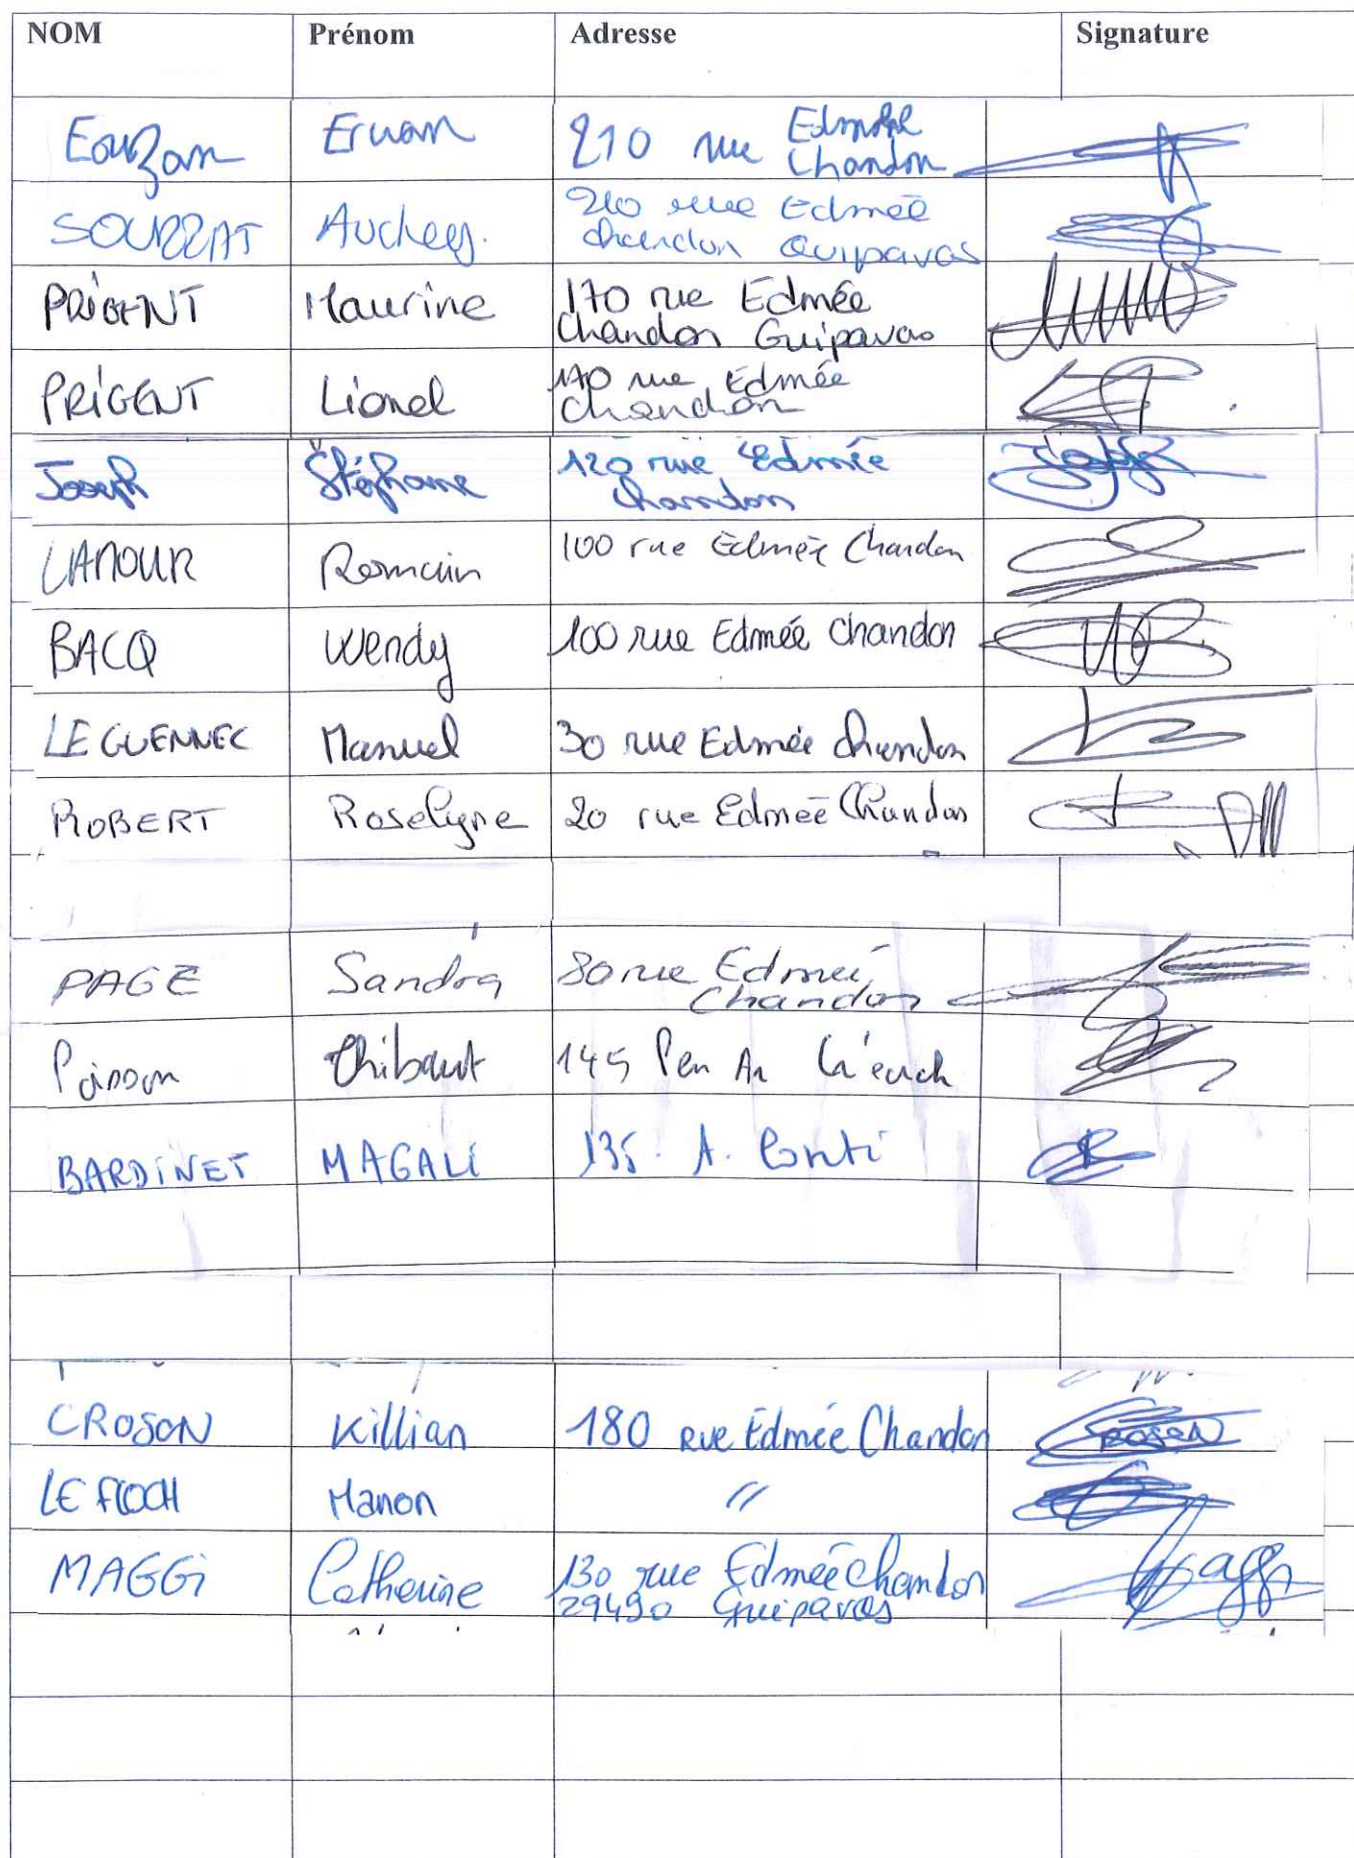 NOM Prénom Adresse Signature
Eouzan Erwan 210 rue Edmée
Chandon
SOUZZAT Audrey 210 rue Edmée
chandon Guipavas
PRIGENT Maurine 170 rue Edmée
Chandon Guipavas
PRIGENT Lionel 170 rue Edmée
Chandon
Joseph Stéphane 120 rue Edmée
Chandon
LAMOUR Romain 100 rue Edmée Chandon
BACQ Wendy 100 rue Edmée Chandon
LE GUENNEC Manuel 30 rue Edmée Chandon
ROBERT Roselyne 20 rue Edmée Chandon
PAGE Sandra 80 rue Edmée
Chandon
Poisson Thibaut 145 Pen An
BARDINET MAGALI 135 A. Conti
CROSON Killian 180 rue Edmée Chandon CROSON
LE FLOCH Manon "
MAGGi Catherine 130 rue Edmée Chandon
29490 Guipavas